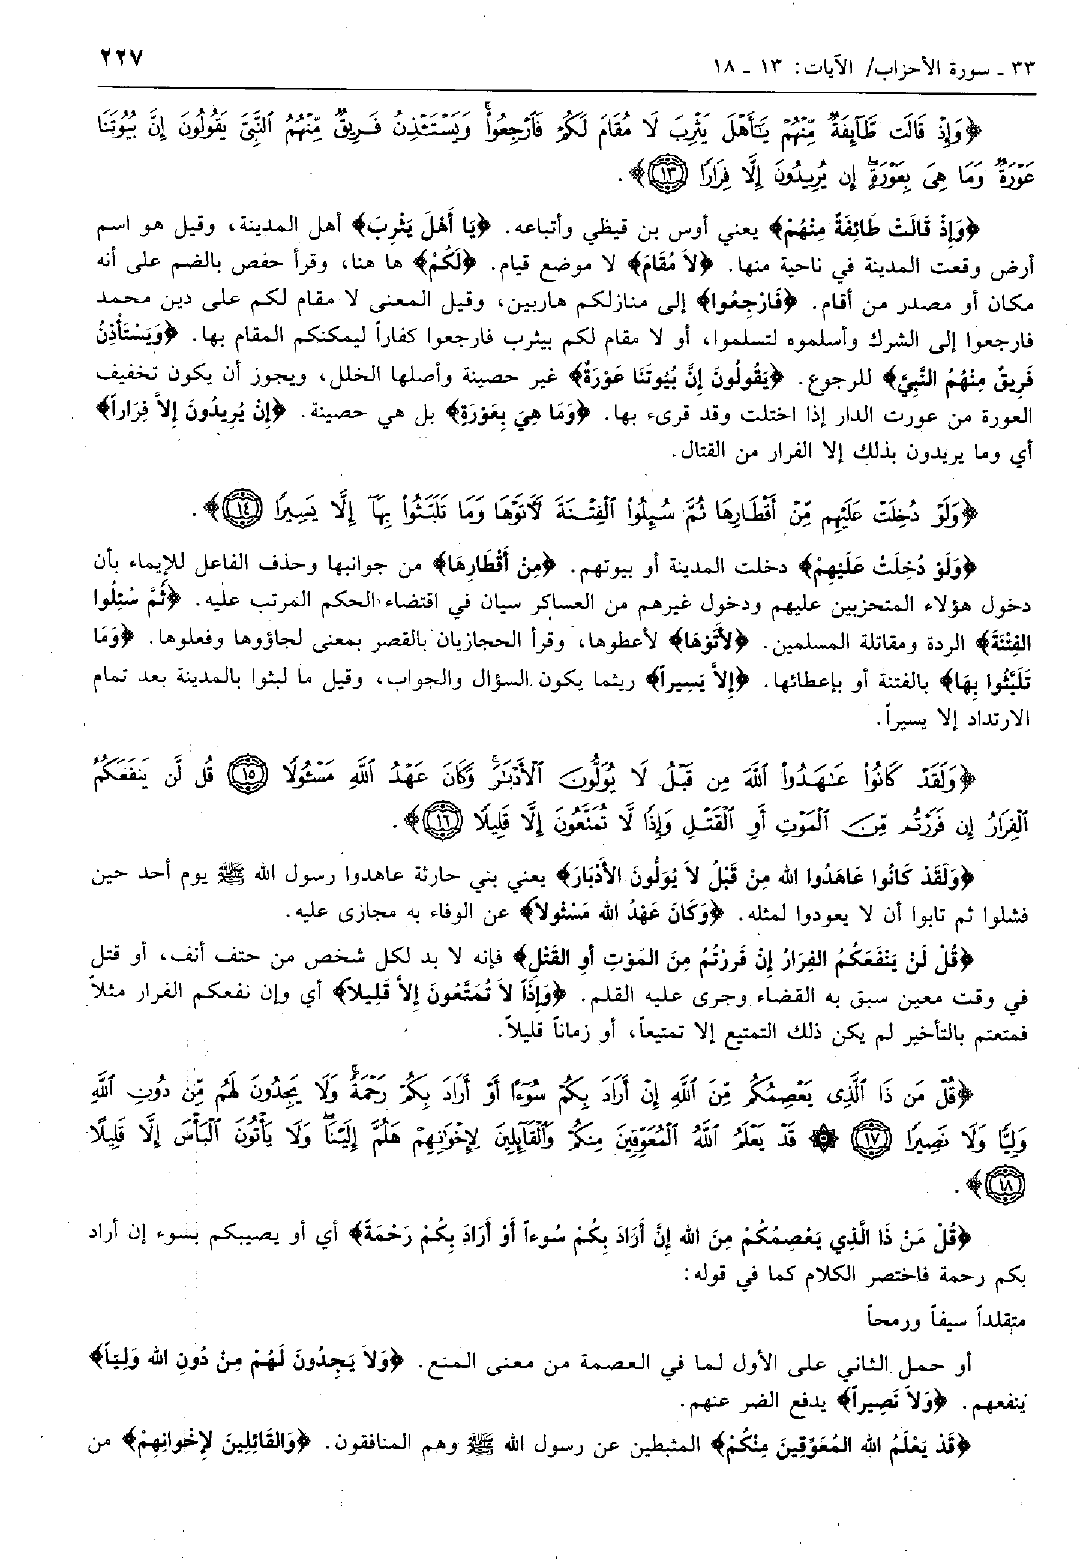 ٣٣ ـ سورة الأحزاب/ الآيات: ١٣ ـ ١٨
٢٢٧
﴿وَإِذْ قَالَت طَّآئِفَةٌ مِّنْهُمْ يَٰٓأَهْلَ يَثْرِبَ لَا مُقَامَ لَكُمْ فَٱرْجِعُوا۟ۚ وَيَسْتَـْٔذِنُ فَرِيقٌ مِّنْهُمُ ٱلنَّبِىَّ يَقُولُونَ إِنَّ بُيُوتَنَا
عَوْرَةٌ وَمَا هِىَ بِعَوْرَةٍۖ إِن يُرِيدُونَ إِلَّا فِرَارًا ١٣﴾.
﴿وَإِذْ قَالَتْ طَائِفَةٌ مِنْهُمْ﴾ يعني أوس بن قيظي وأتباعه. ﴿يَا أَهْلَ يَثْرِبَ﴾ أهل المدينة، وقيل هو اسم
أرض وقعت المدينة في ناحية منها. ﴿لاَ مُقَامَ﴾ لا موضع قيام. ﴿لَكُمْ﴾ ها هنا، وقرأ حفص بالضم على أنه
مكان أو مصدر من أقام. ﴿فَارْجِعُوا﴾ إلى منازلكم هاربين، وقيل المعنى لا مقام لكم على دين محمد
فارجعوا إلى الشرك وأسلموه لتسلموا، أو لا مقام لكم بيثرب فارجعوا كفاراً ليمكنكم المقام بها. ﴿وَيَسْتَأْذِنُ
فَرِيقٌ مِنْهُمُ النَّبِيَّ﴾ للرجوع. ﴿يَقُولُونَ إِنَّ بُيُوتَنَا عَوْرَةٌ﴾ غير حصينة وأصلها الخلل، ويجوز أن يكون تخفيف
العورة من عورت الدار إذا اختلت وقد قرىء بها. ﴿وَمَا هِيَ بِعَوْرَةٍ﴾ بل هي حصينة. ﴿إِنْ يُرِيدُونَ إِلاَّ فِرَاراً﴾
أي وما يريدون بذلك إلا الفرار من القتال.
﴿وَلَوْ دُخِلَتْ عَلَيْهِم مِّنْ أَقْطَارِهَا ثُمَّ سُئِلُوا۟ ٱلْفِتْنَةَ لَءَاتَوْهَا وَمَا تَلَبَّثُوا۟ بِهَآ إِلَّا يَسِيرًا ١٤﴾.
﴿وَلَوْ دُخِلَتْ عَلَيْهِمْ﴾ دخلت المدينة أو بيوتهم. ﴿مِنْ أَقْطَارِهَا﴾ من جوانبها وحذف الفاعل للإيماء بأن
دخول هؤلاء المتحزبين عليهم ودخول غيرهم من العساكر سيان في اقتضاء الحكم المرتب عليه. ﴿ثُمَّ سُئِلُوا
الفِتْنَةَ﴾ الردة ومقاتلة المسلمين. ﴿لأَتَوْهَا﴾ لأعطوها، وقرأ الحجازيان بالقصر بمعنى لجاؤوها وفعلوها. ﴿وَمَا
تَلَبَّثُوا بِهَا﴾ بالفتنة أو بإعطائها. ﴿إِلاَّ يَسِيراً﴾ ريثما يكون السؤال والجواب، وقيل ما لبثوا بالمدينة بعد تمام
الارتداد إلا يسيراً.
﴿وَلَقَدْ كَانُوا۟ عَٰهَدُوا۟ ٱللَّهَ مِن قَبْلُ لَا يُوَلُّونَ ٱلْأَدْبَٰرَۚ وَكَانَ عَهْدُ ٱللَّهِ مَسْـُٔولًا ١٥ قُل لَّن يَنفَعَكُمُ
ٱلْفِرَارُ إِن فَرَرْتُم مِّنَ ٱلْمَوْتِ أَوِ ٱلْقَتْلِ وَإِذًا لَّا تُمَتَّعُونَ إِلَّا قَلِيلًا ١٦﴾.
﴿وَلَقَدْ كَانُوا عَاهَدُوا الله مِنْ قَبْلُ لاَ يُوَلُّونَ الأَدْبَارَ﴾ يعني بني حارثة عاهدوا رسول الله ﷺ يوم أحد حين
فشلوا ثم تابوا أن لا يعودوا لمثله. ﴿وَكَانَ عَهْدُ الله مَسْئُولاً﴾ عن الوفاء به مجازى عليه.
﴿قُلْ لَنْ يَنْفَعَكُمُ الفِرَارُ إِنْ فَرَرْتُمْ مِنَ المَوْتِ أَوِ القَتْلِ﴾ فإنه لا بد لكل شخص من حتف أنف، أو قتل
في وقت معين سبق به القضاء وجرى عليه القلم. ﴿وَإِذَاً لاَ تُمَتَّعُونَ إِلاَّ قَلِيلاً﴾ أي وإن نفعكم الفرار مثلاً
فمتعتم بالتأخير لم يكن ذلك التمتيع إلا تمتيعاً، أو زماناً قليلاً.
﴿قُلْ مَن ذَا ٱلَّذِى يَعْصِمُكُم مِّنَ ٱللَّهِ إِنْ أَرَادَ بِكُمْ سُوٓءًا أَوْ أَرَادَ بِكُمْ رَحْمَةًۚ وَلَا يَجِدُونَ لَهُم مِّن دُونِ ٱللَّهِ
وَلِيًّا وَلَا نَصِيرًا ١٧ ۞ قَدْ يَعْلَمُ ٱللَّهُ ٱلْمُعَوِّقِينَ مِنكُمْ وَٱلْقَآئِلِينَ لِإِخْوَٰنِهِمْ هَلُمَّ إِلَيْنَاۖ وَلَا يَأْتُونَ ٱلْبَأْسَ إِلَّا قَلِيلًا
١٨﴾.
﴿قُلْ مَنْ ذَا الَّذِي يَعْصِمُكُمْ مِنَ الله إِنْ أَرَادَ بِكُمْ سُوءاً أَوْ أَرَادَ بِكُمْ رَحْمَةً﴾ أي أو يصيبكم بسوء إن أراد
بكم رحمة فاختصر الكلام كما في قوله:
متقلداً سيفاً ورمحاً
أو حمل الثاني على الأول لما في العصمة من معنى المنع. ﴿وَلاَ يَجِدُونَ لَهُمْ مِنْ دُونِ الله وَلِيّاً﴾
ينفعهم. ﴿وَلاَ نَصِيراً﴾ يدفع الضر عنهم.
﴿قَدْ يَعْلَمُ الله المُعَوِّقِينَ مِنْكُمْ﴾ المثبطين عن رسول الله ﷺ وهم المنافقون. ﴿وَالقَائِلِينَ لإِخْوانِهِمْ﴾ من